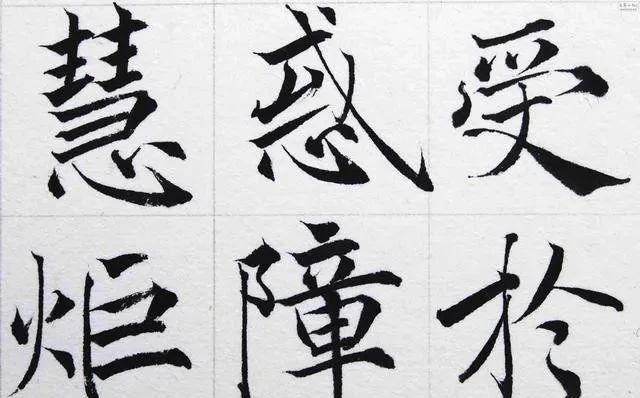 受於
惑障
慧炬